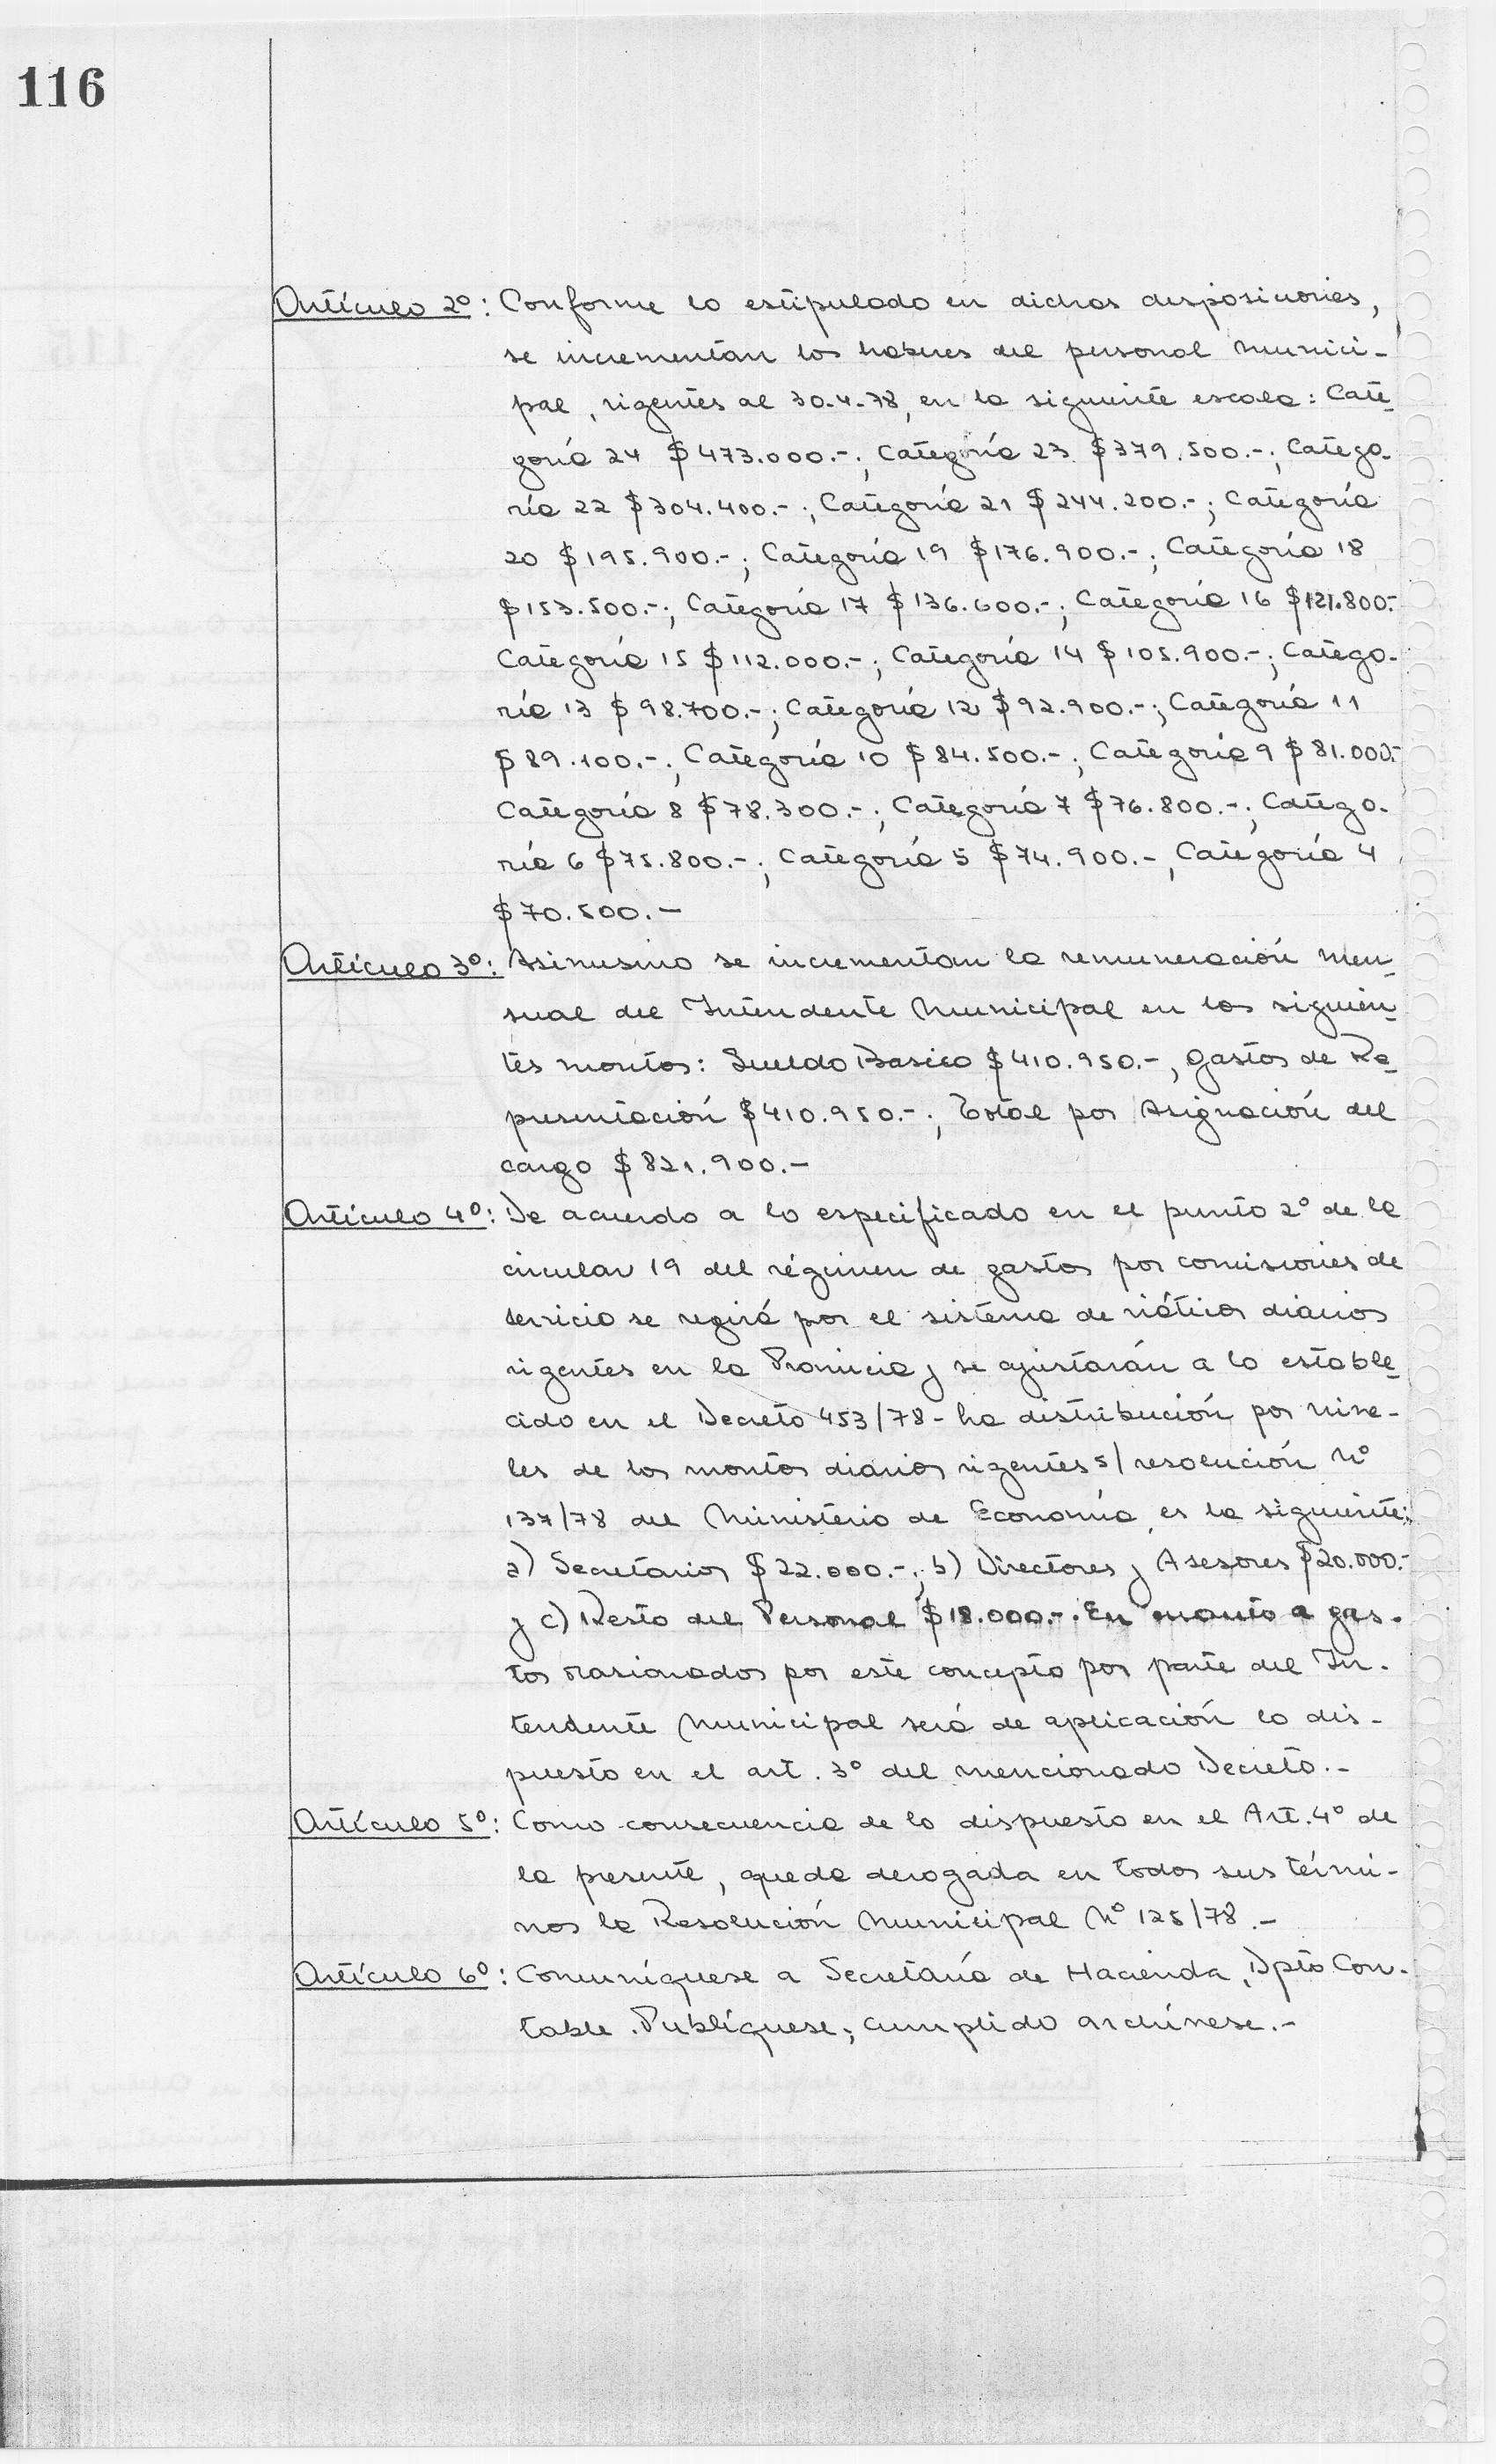 116
Artículo 2º: Conforme lo estipulado en dichas disposiciones,
se incrementan los haberes del personal Munici-
pal, vigentes al 30-4-78, en la siguiente escala: Cate-
goría 24 $ 473.000.-; Categoría 23 $ 379.500.-; Catego-
ría 22 $ 304.400.-; Categoría 21 $ 244.200.-; Categoría
20 $ 195.900.-; Categoría 19 $ 176.900.-; Categoría 18
$ 153.500.-; Categoría 17 $ 136.600.-; Categoría 16 $ 121.800.-
Categoría 15 $ 112.000.-; Categoría 14 $ 105.900.-; Catego-
ría 13 $ 98.700.-; Categoría 12 $ 92.900.-; Categoría 11
$ 89.100.-; Categoría 10 $ 84.500.-; Categoría 9 $ 81.000.-
Categoría 8 $ 78.300.-; Categoría 7 $ 76.800.-; Catego-
ría 6 $ 75.800.-; Categoría 5 $ 74.900.-, Categoría 4
$ 70.500.-
Artículo 3º: Asimismo se incrementan la remuneración Men-
sual del Intendente Municipal en los siguien-
tes montos: Sueldo Basico $ 410.950.-, Gastos de Re-
presentación $ 410.950.-; Total por Asignación del
cargo $ 821.900.-
Artículo 4º: De acuerdo a lo especificado en el punto 2º de la
circular 19 del régimen de gastos por comisiones de
servicio se regirá por el sistema de viáticos diarios
vigentes en la Provincia y se ajustarán a lo estable-
cido en el Decreto 453/78 - La distribución por nive-
les de los montos diarios vigentes s/ resolución Nº
137/78 del Ministerio de Economía, es la siguiente:
a) Secretarios $ 22.000.-; b) Directores y Asesores $ 20.000.-
y c) Resto del Personal $ 18.000.-. En cuanto a gas-
tos ocasionados por este concepto por parte del In-
tendente Municipal será de aplicación lo dis-
puesto en el art. 3º del mencionado Decreto.-
Artículo 5º: Como consecuencia de lo dispuesto en el Art. 4º de
la presente, queda derogada en todos sus térmi-
nos la Resolución Municipal Nº 125/78.-
Artículo 6º: Comuníquese a Secretaría de Hacienda, Dpto Con-
table. Publíquese; cumplido archívese.-